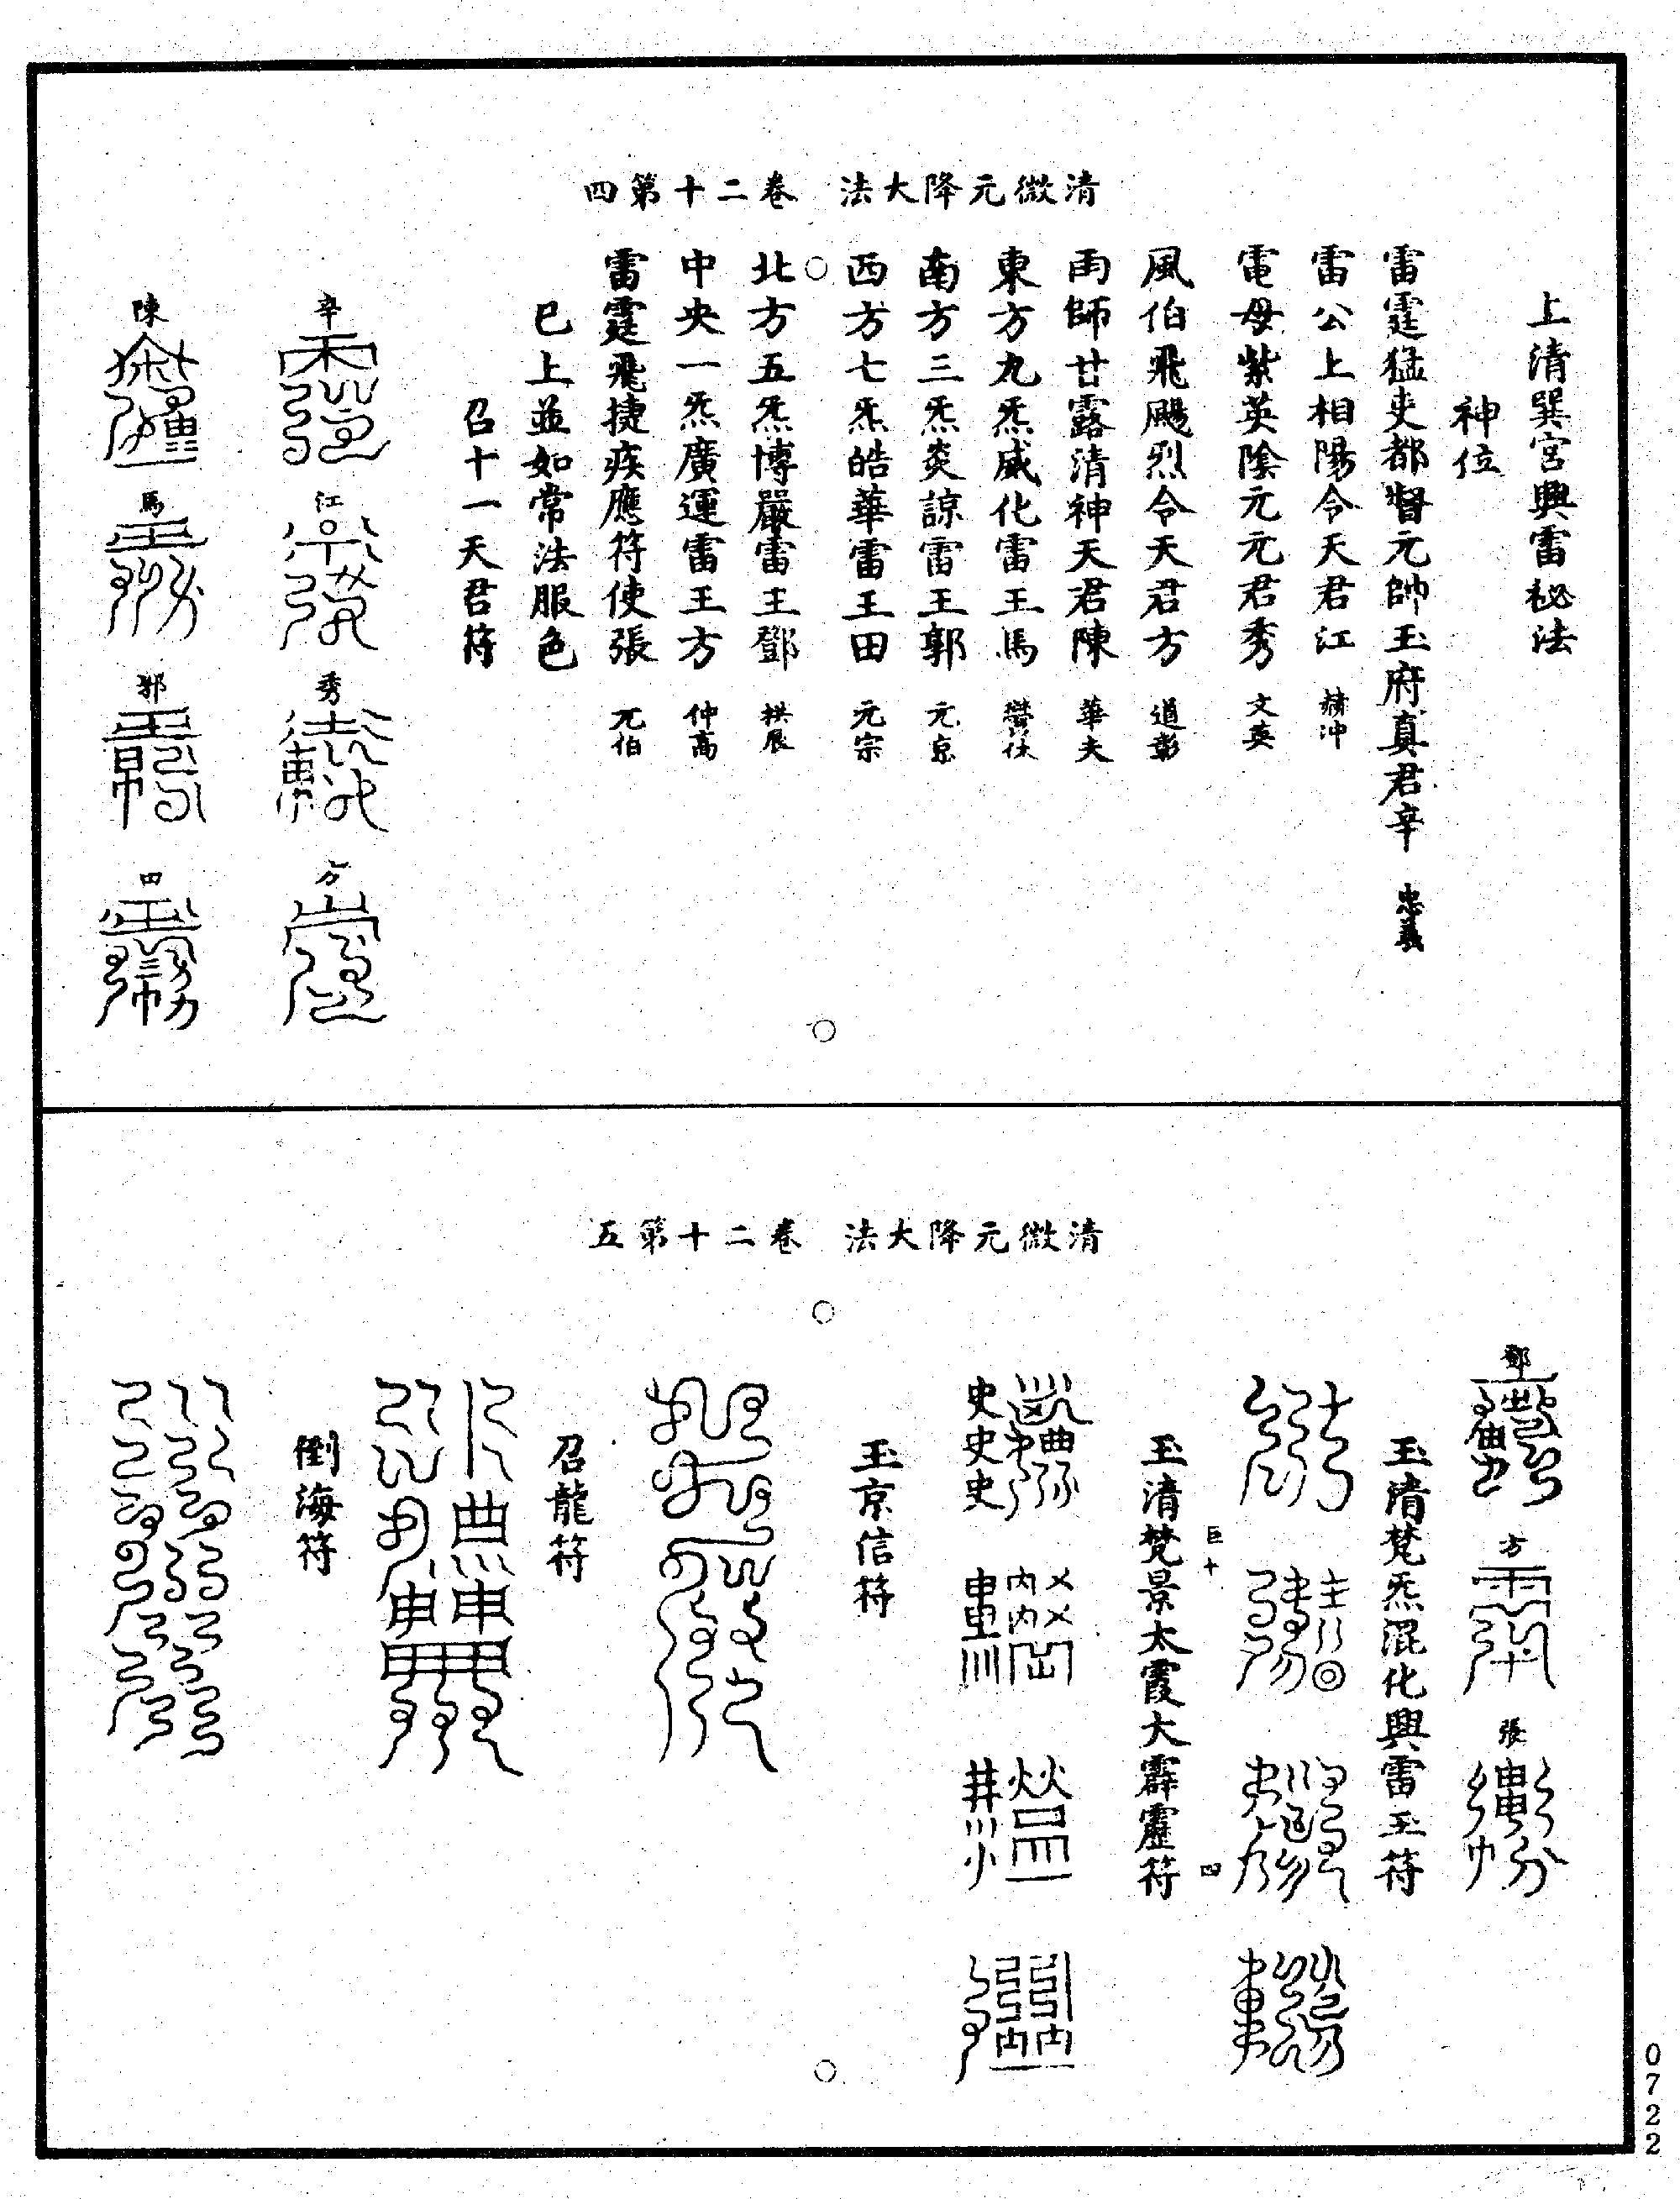 清微元降大法　卷二十第四
上清巽宮興雷秘法
神位
雷霆猛吏都督元帥玉府真君辛　忠義
雷公上相陽令天君江　赫冲
電母紫英陰元元君秀　文英
風伯飛颺烈令天君方　道彰
雨師甘露清神天君陳　華夫
東方九炁威化雷王馬
南方三炁炎諒雷王郭　元京
西方七炁皓華雷王田　元宗
北方五炁博嚴雷王鄧　拱辰
中央一炁廣運雷王方　仲高
雷霆飛捷疾應符使張　元伯
已上並如常法服色
召十一天君符
辛
江
秀
方
陳
馬
郭
田
清微元降大法　卷二十第五
鄧
方
張
玉清梵炁混化興雷玉符
巨十
四
玉清梵景太霞大霹靂符
玉京信符
召龍符
倒海符
0722